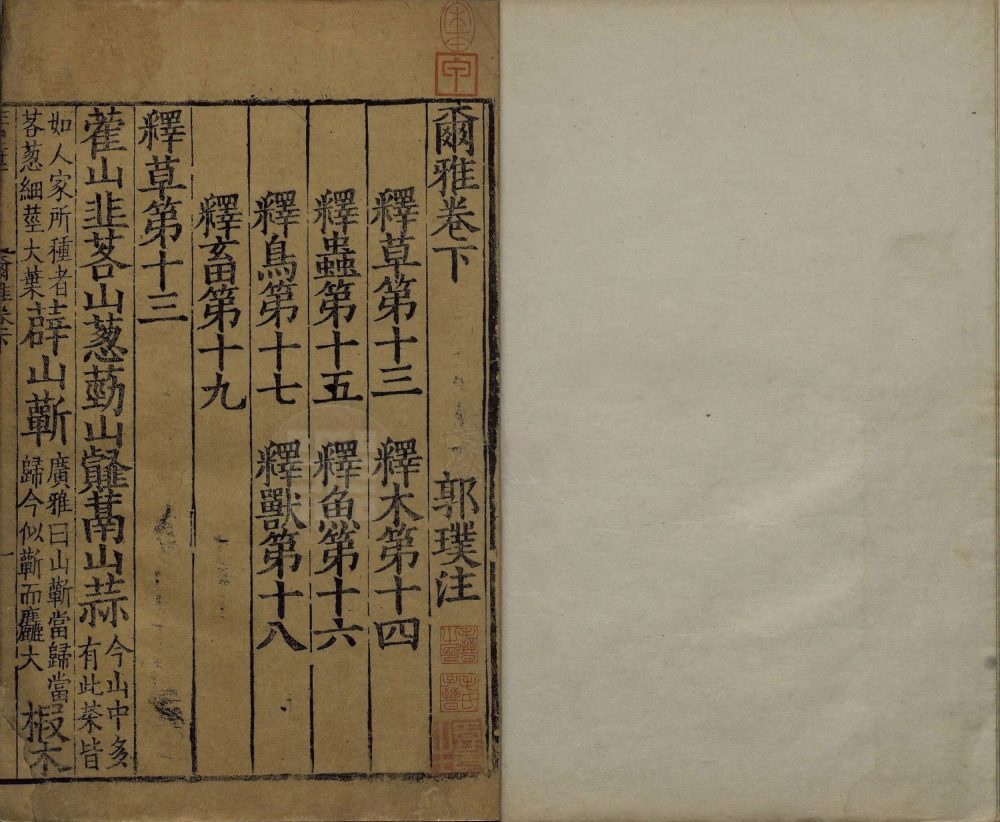 爾雅卷下 郭璞注
釋草第十三 釋木第十四
釋蟲第十五 釋魚第十六
釋鳥第十七 釋獸第十八
釋畜第十九
釋草第十三
藿山韭茖山葱葝山䪥蒚山蒜今山中多有此菜皆
如人家所種者茖葱細莖大葉薜山蘄廣雅曰山蘄當歸當歸今似蘄而麤大椴木